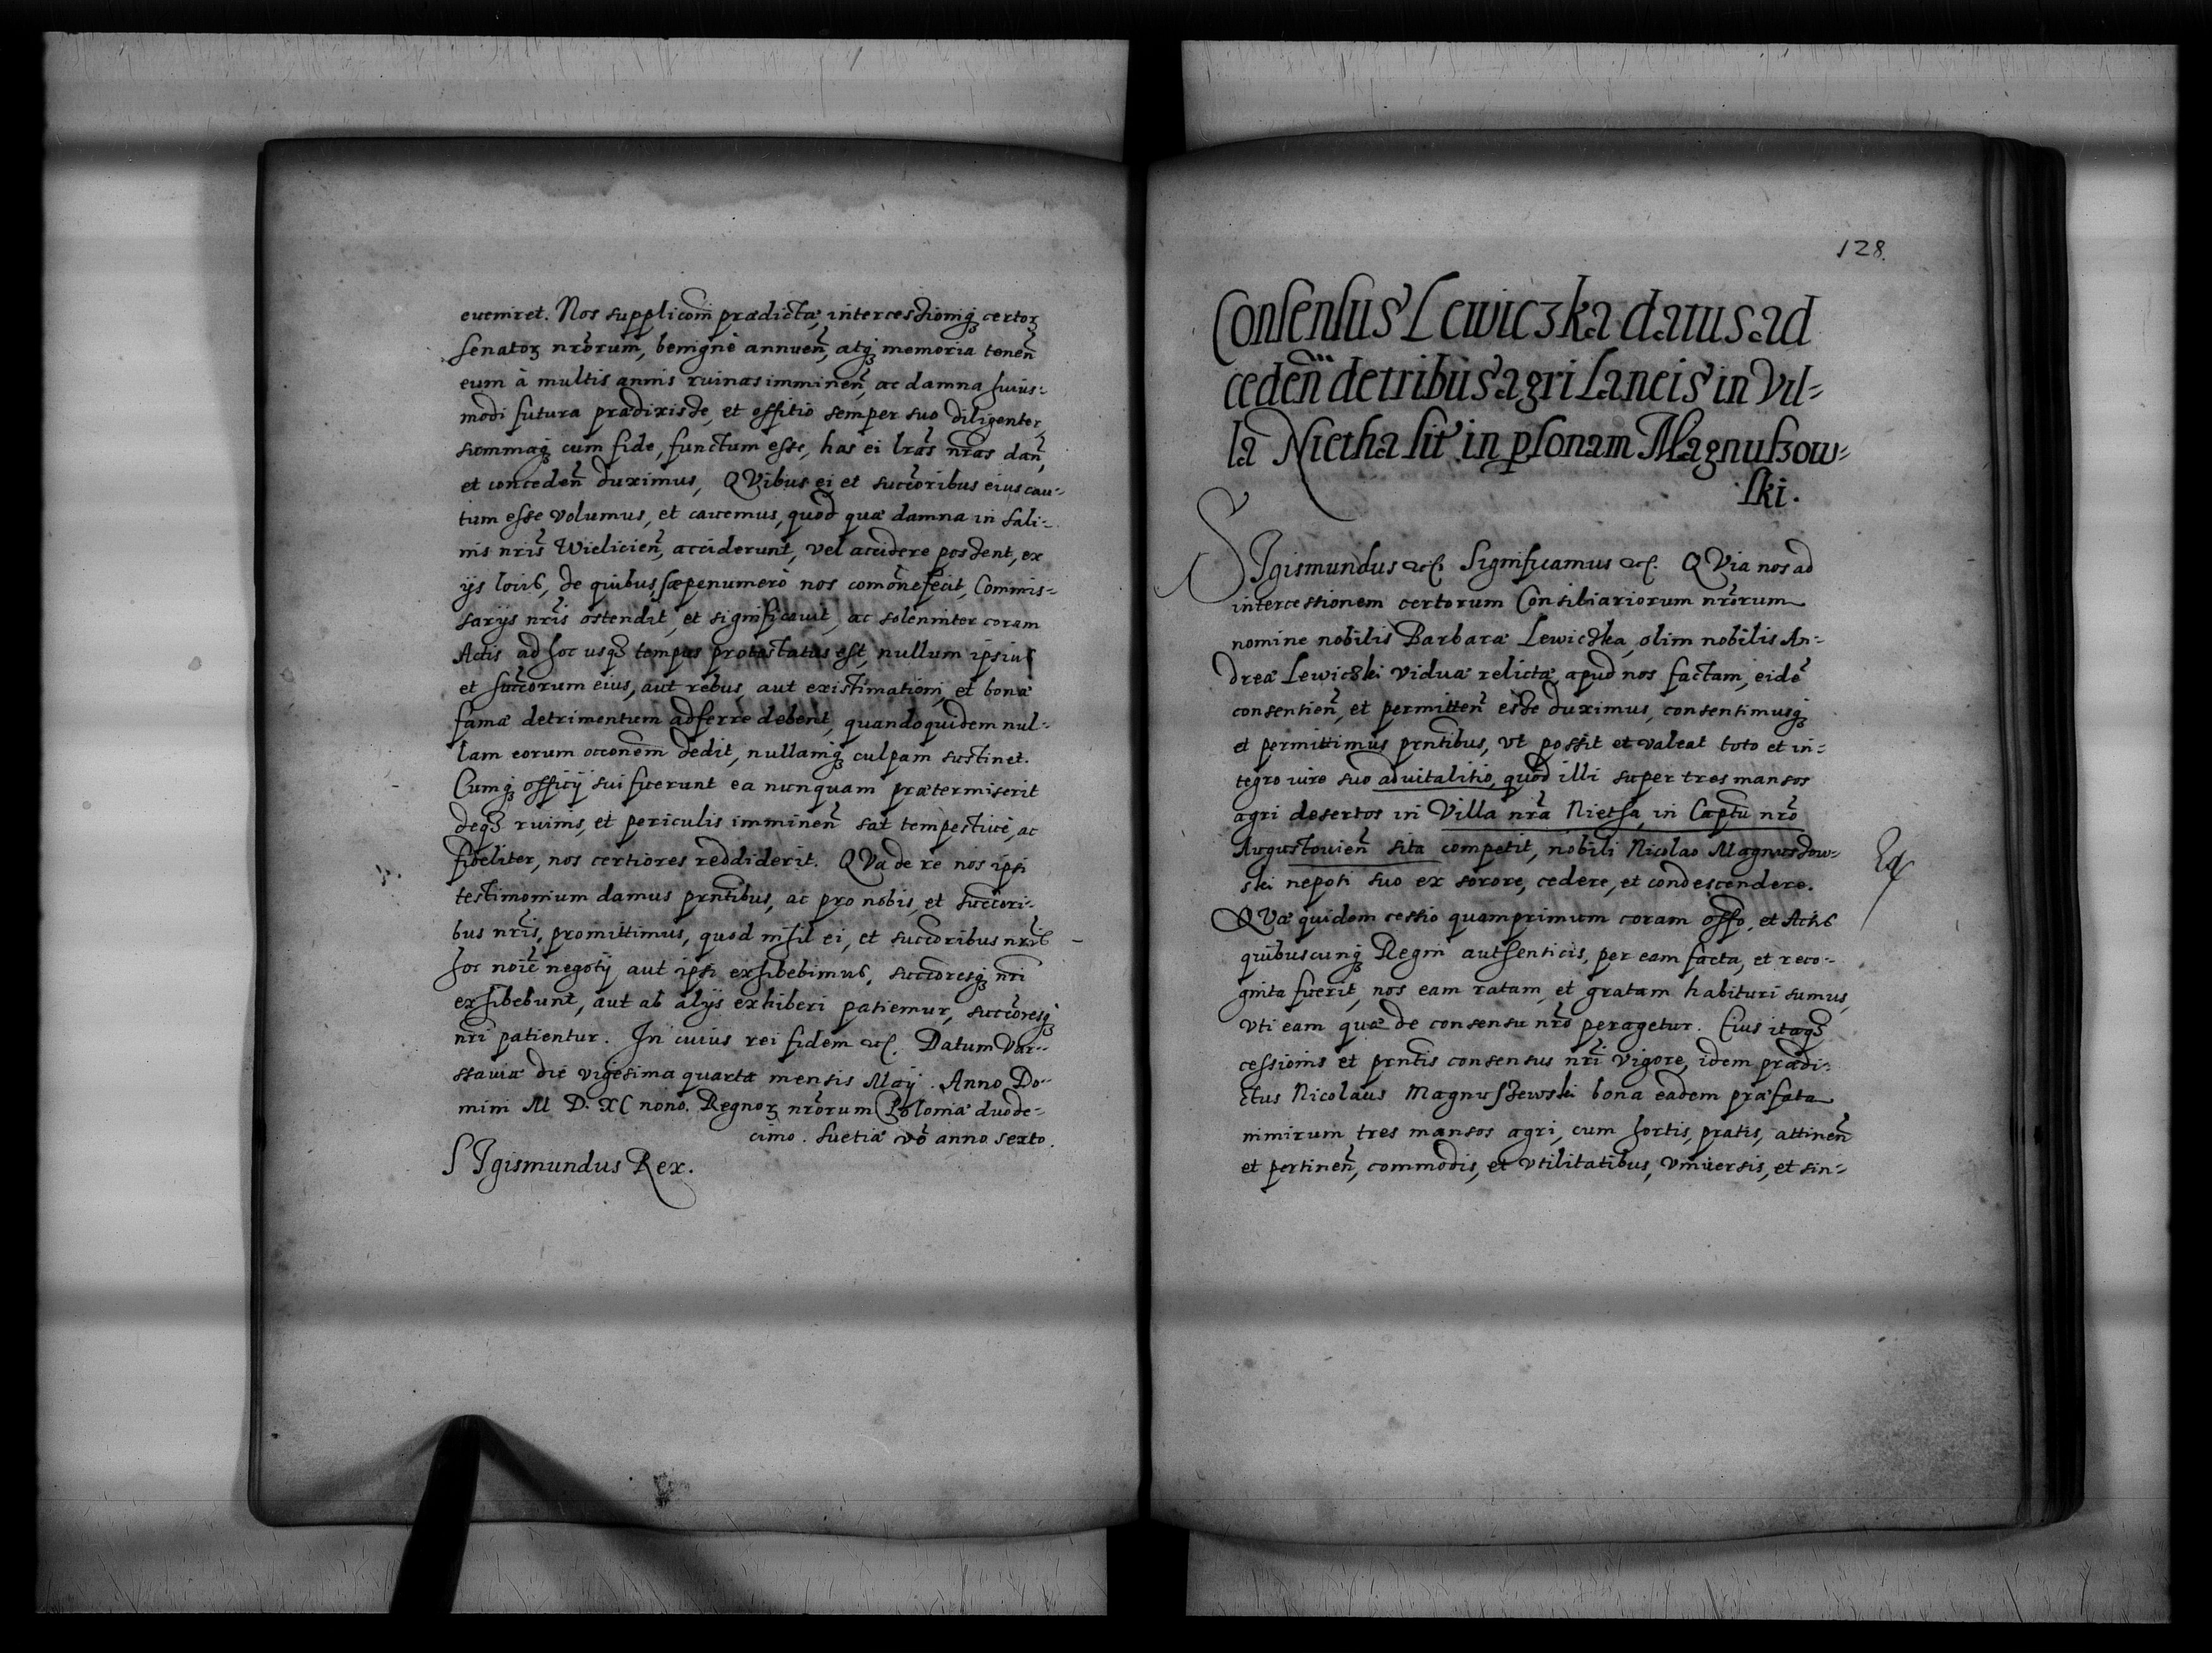 eveniret. Nos supplicom̄ prædictæ, intercessioniq꜄ certoꝝ
senatoꝝ nrōrum, benignè annuen̄, atq꜄ memoria tenen̄
eum à multis annis ruinas imminen̄, ac damna huius-
modi futura prædixisse, et offitio semper suo diligenter,
summaq꜄ cum fide, functum esse, has ei lrās nrās dan̄,
et conceden̄ duximus, QVibus ei et succoribus eius cau-
tum esse volumus, et cavemus, quod quæ damna in Sali-
nis nrīs Wielicien̄, acciderunt, vel accidere possent, ex
ijs locis, de quibus, sæpenumerò nos comonefecit, Commis-
sarijs nrīs ostendit, et significavit, ac solenniter coram
Actis ad hoc usq꜄ tempus protestatus est, nullum ipsius
et succorum eius, aut rebus aut existimationi, et bonæ
famæ detrimentum adferre debent, quandoquidem nul-
lam eorum occōnem dedit, nullamq꜄ culpam sustinet.
Cumq꜄ officij sui fuerunt ea nunquam prætermiserit
deq꜄ ruinis, et periculis imminen̄ sat tempestivè, ac
fideliter, nos certiores reddiderit. QVa de re nos ipsi
testimonium damus prntibus, ac pro nobis, et succori-
bus nrīs, promittimus, quod nihil ei, et succoribus nrīs
hoc noīe negotij aut ipsi exhibebimus, succoresq꜄ nrī
exhibebunt, aut ab alijs exhiberi patiemur, succoresq꜄
nrī patientur. In cuius rei fidem etc. Datum Var-
ssaviæ die vigesima quarta mensis Maij. Anno Do-
mini M D. XC nono. Regnoꝝ nrōrum Poloniæ duode-
cimo. Suetiæ vō anno sexto.
SIgismundus Rex.
128.
Consensus Lewiczka datus ad
ceden̄ de tribus agri Laneis in Vil-
la Nietha sit' in psonam Magnuszow-
ski.
SIgismundus etc. Significamus etc. QVia nos ad
intercessionem certorum Consiliariorum nrōrum
nomine nobilis Barbaræ Lewiczka, olim nobilis An-
dreæ Lewiczki viduæ relictæ, apud nos factam, eidē
consentien̄, et permitten̄ esse duximus, consentimusq꜄
et permittimus prntibus, vt possit et valeat toto et in-
tegro iure suo advitalitio, quod illi super tres mansos
agri desertos in Villa nrā Nietha, in Captū nrō
Augustovien̄ sita competit, nobili Nicolao Magnussow-
ski nepoti suo ex sorore, cedere, et condescendere.
QVæ quidem cessio quamprimum coram offo, et Actis
quibuscunq꜄ Regni authenticis, per eam facta, et reco-
gnita fuerit, nos eam ratam, et gratam habituri sumus,
vti eam quæ de consensu nrō peragetur. Cuius itaq꜄
cessionis et prntis consensus nrī vigore, idem prædi-
ctus Nicolaus Magnuszewski bona eadem præfata
nimirum tres mansos agri, cum hortis, pratis, attinen̄
et pertinen̄, commodis, et vtilitatibus, vniversis, et sin-